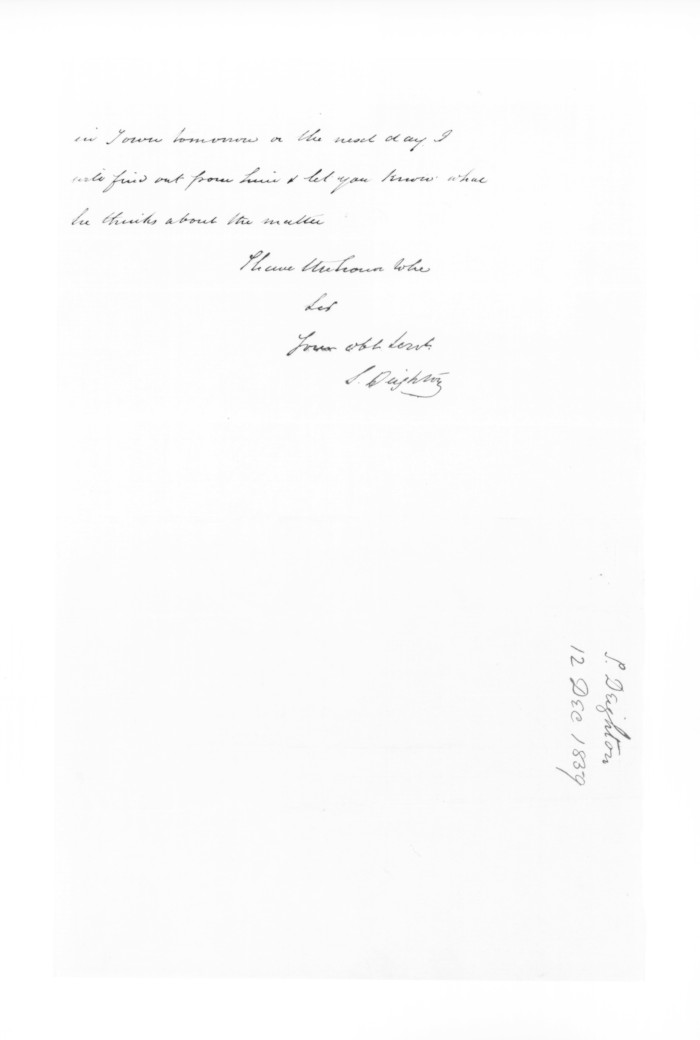 in Town tomorrow or the next day I
will find out from him & let you know what
he thinks about the matter
I have the honor to be
Sir
Your obt Servt
S. Deighton
S. Deighton
12 DEC 1839